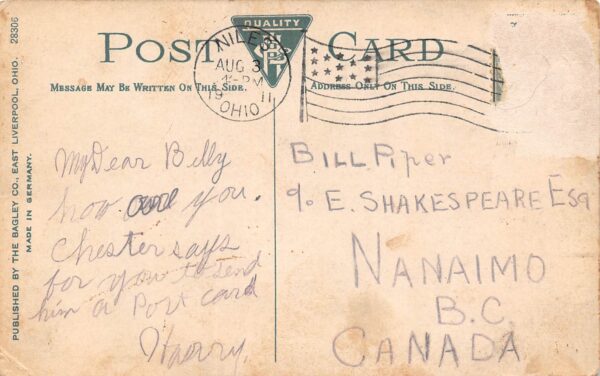 PUBLISHED BY THE BAGLEY CO., EAST LIVERPOOL, OHIO. 28306
MADE IN GERMANY.
QUALITY
POST CARD
MESSAGE MAY BE WRITTEN ON THIS SIDE.
ADDRESS ONLY ON THIS SIDE.
NILES
AUG 3
PM
19 11
OHIO
My Dear Billy
how are you.
Chester says
for you to send
him a Port card
Harry.
BILL PIPER
c/o E. SHAKESPEARE ESQ
NANAIMO
B.C.
CANADA